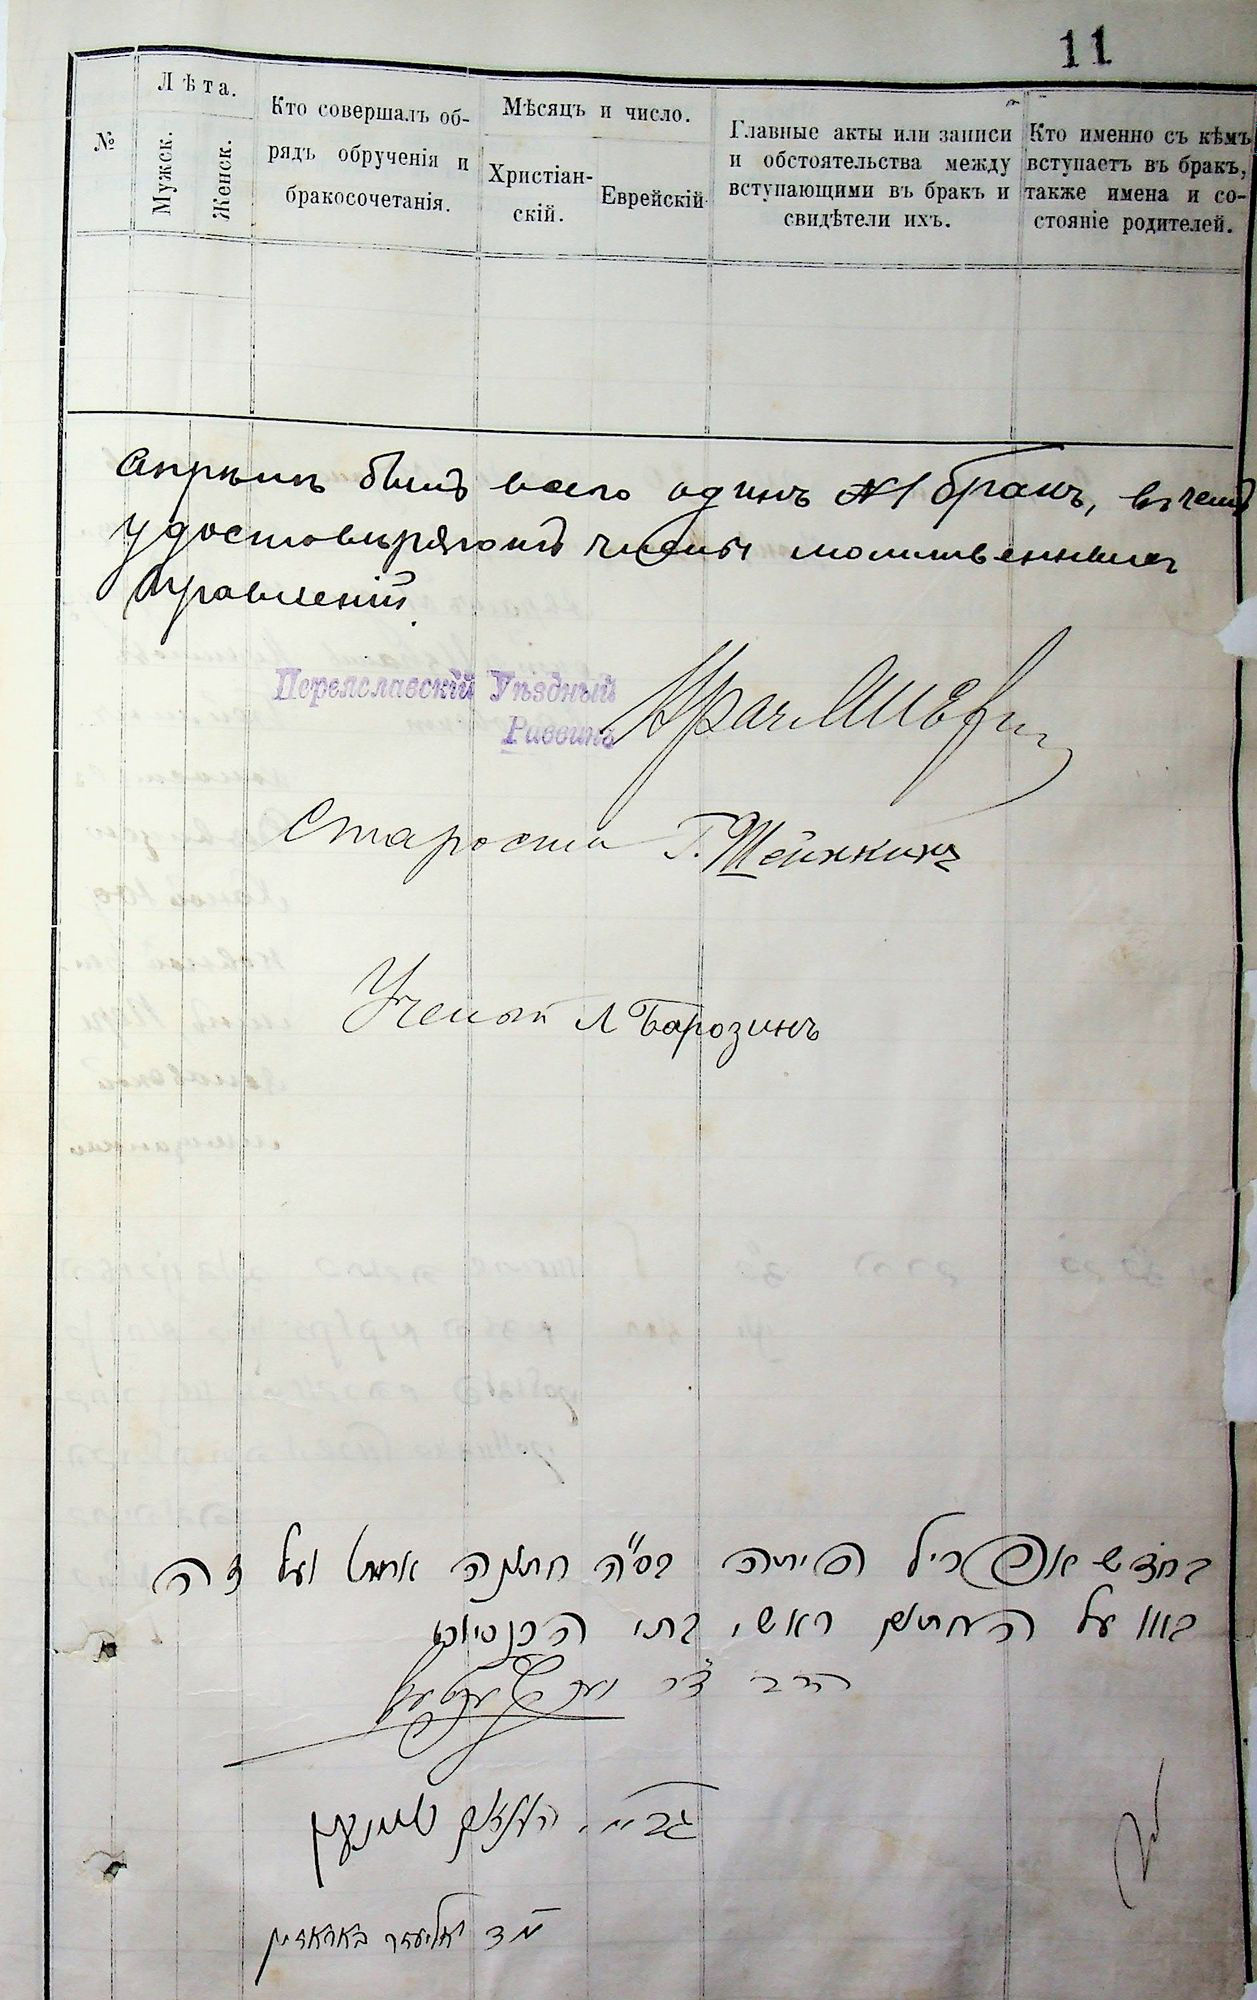 11
№
Лѣта.
Мужск.
Женск.
Кто совершалъ об-
рядъ обрученія и
бракосочетанія.
Мѣсяцъ и число.
Христіан-
скій.
Еврейскій
Главные акты или записи
и обстоятельства между
вступающими въ бракъ и
свидѣтели ихъ.
Кто именно съ кѣмъ
вступаетъ въ бракъ,
также имена и со-
стояніе родителей.
Апрѣлѣ былъ всего одинъ №1 бракъ, въ чемъ
удостовѣряютъ члены молитвенныхъ
правленій.
Переяславскій Уѣздный
Раввинъ
Староста Г. Шейнкинъ
Ученый Л Барозинъ
בחדש אפריל היתה בס״ה חתונה אחת ועל זה
באו על החתום ראשי בתי הכנסיות
הרב
גבאי